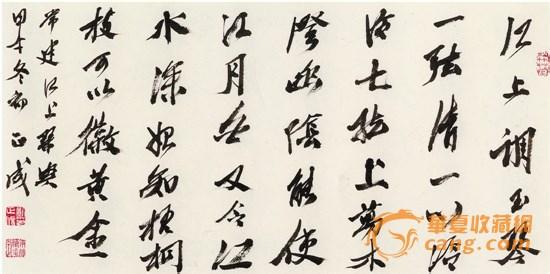 江上調玉琴
一弦清一心泠
泠七弦上萬木
澄幽陰能使
江月白又令江
水深始知梧桐
枝可以徽黄金
常建江上琴興
冬初正成
华夏收藏网
cang.com